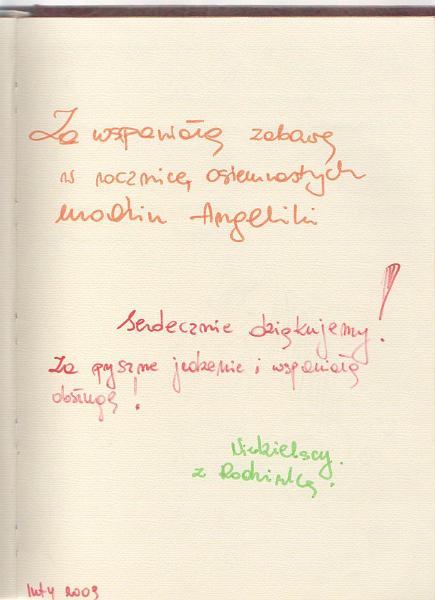 Za wspaniałą zabawę
w rocznicę osiemnastych
urodzin Angeliki
serdecznie dziękujemy!
Za pyszne jedzenie i wspaniałą
obsługę!
z Rodzinką.
luty 2009